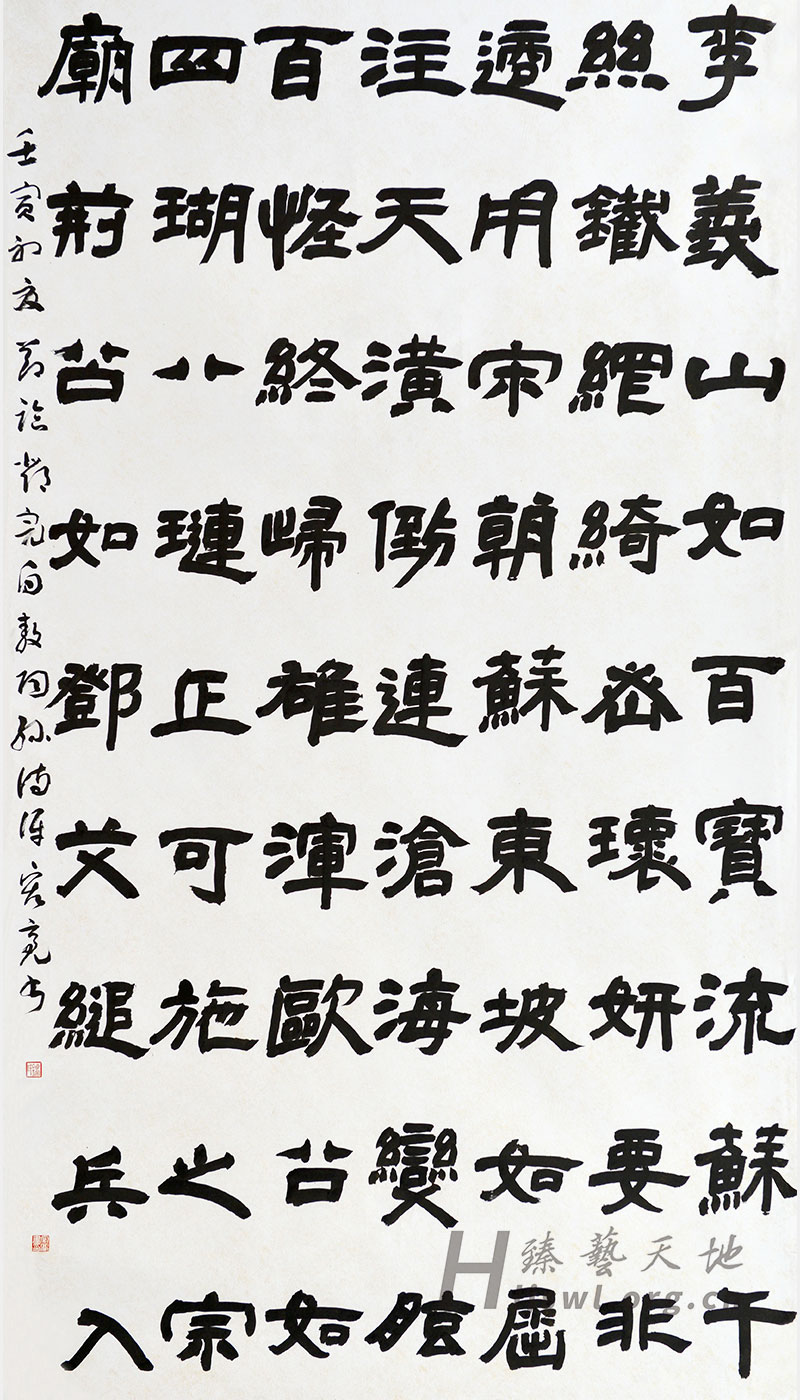 李義山如百寶流蘇千
絲鐵網綺密瓌妍要非
適用宋朝蘇東坡如屈
注天潢倒連滄海變眩
百怪終歸雄渾歐公如
四瑚八璉正可施之宗
廟荊公如鄧艾縋兵入
壬寅初夏節臨鄧完白敖陶孫詩評亮書
臻藝天地